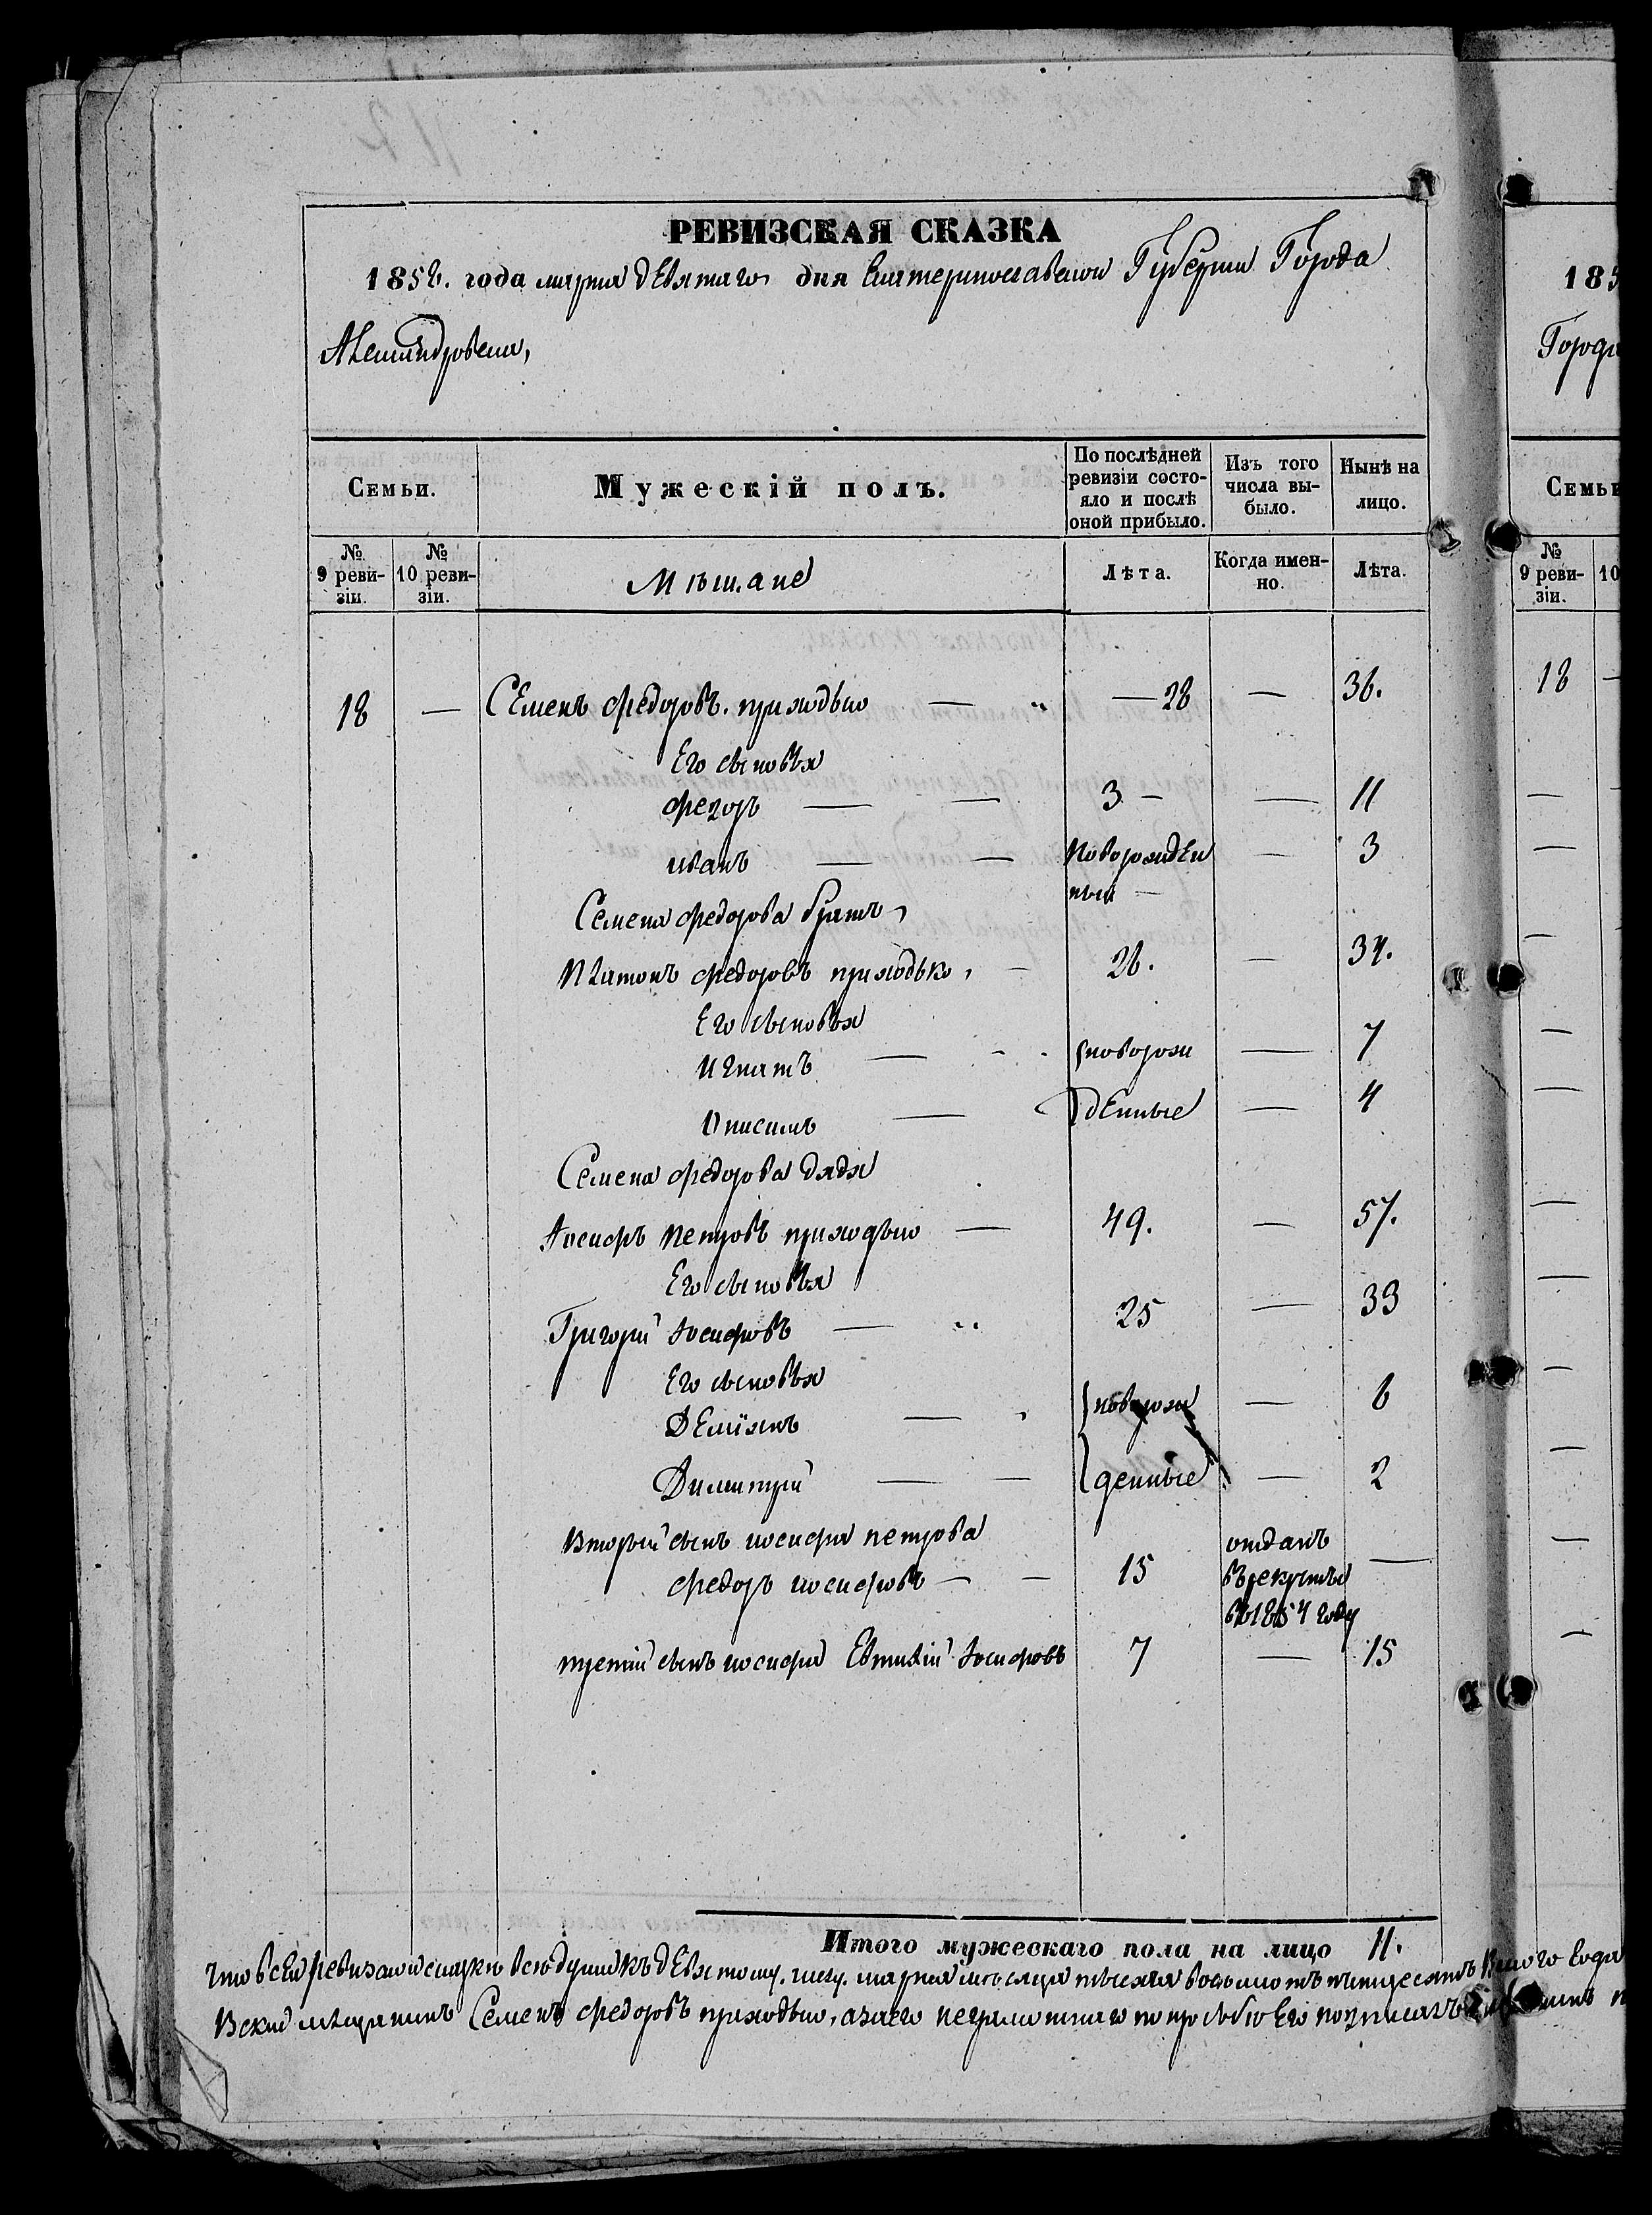 РЕВИЗСКАЯ СКАЗКА
1858. года марта девятаго дня Екатеринославской Губерніи Города
Александровска,
Семьи.
Мужескій полъ.
По послѣдней ревизіи состояло и послѣ оной прибыло.
Изъ того числа выбыло.
Нынѣ на лицо.
№ 9 ревизіи.
№ 10 ревизіи.
Мѣщане
Лѣта.
Когда именно.
Лѣта.
18 — Семенъ Федоровъ Приходько — — 28 — 36.
Его сыновья
Федоръ — — 3 — — 11
Иванъ — — новорожден — 3
ный —
Семена Федорова братъ
Платонъ Федоровъ Приходько, — 26. — 34.
Его сыновья
Игнатъ — новорож — 7
Онисимъ — денные — 4
Семена Федорова дядя
Іосифъ Петровъ Приходько — 49. — 57.
Его сыновья
Григорій Іосифовъ — 25 — 33
Его сыновья
Деміянъ — новорож — 6
Димитрій — — денные — 2
Вторый сынъ Іосифа Петрова
Федоръ Іосифовъ — — 15 отданъ —
въ рекруты
въ 1854 году
третій сынъ Іосифа Евтихій Іосифовъ 7 — 15
Итого мужескаго пола на лицо 11.
что в сей ревизской сказке все души къ девятому числу марта месяца тысяча восьмотъ пятдесятъ года
вский мещанинъ Семенъ Федоровъ Приходько, а за его неграмотнаго по прозьбе его подписалъ
185
Города
Семьи
№ 9 ревизіи.
10
18 —